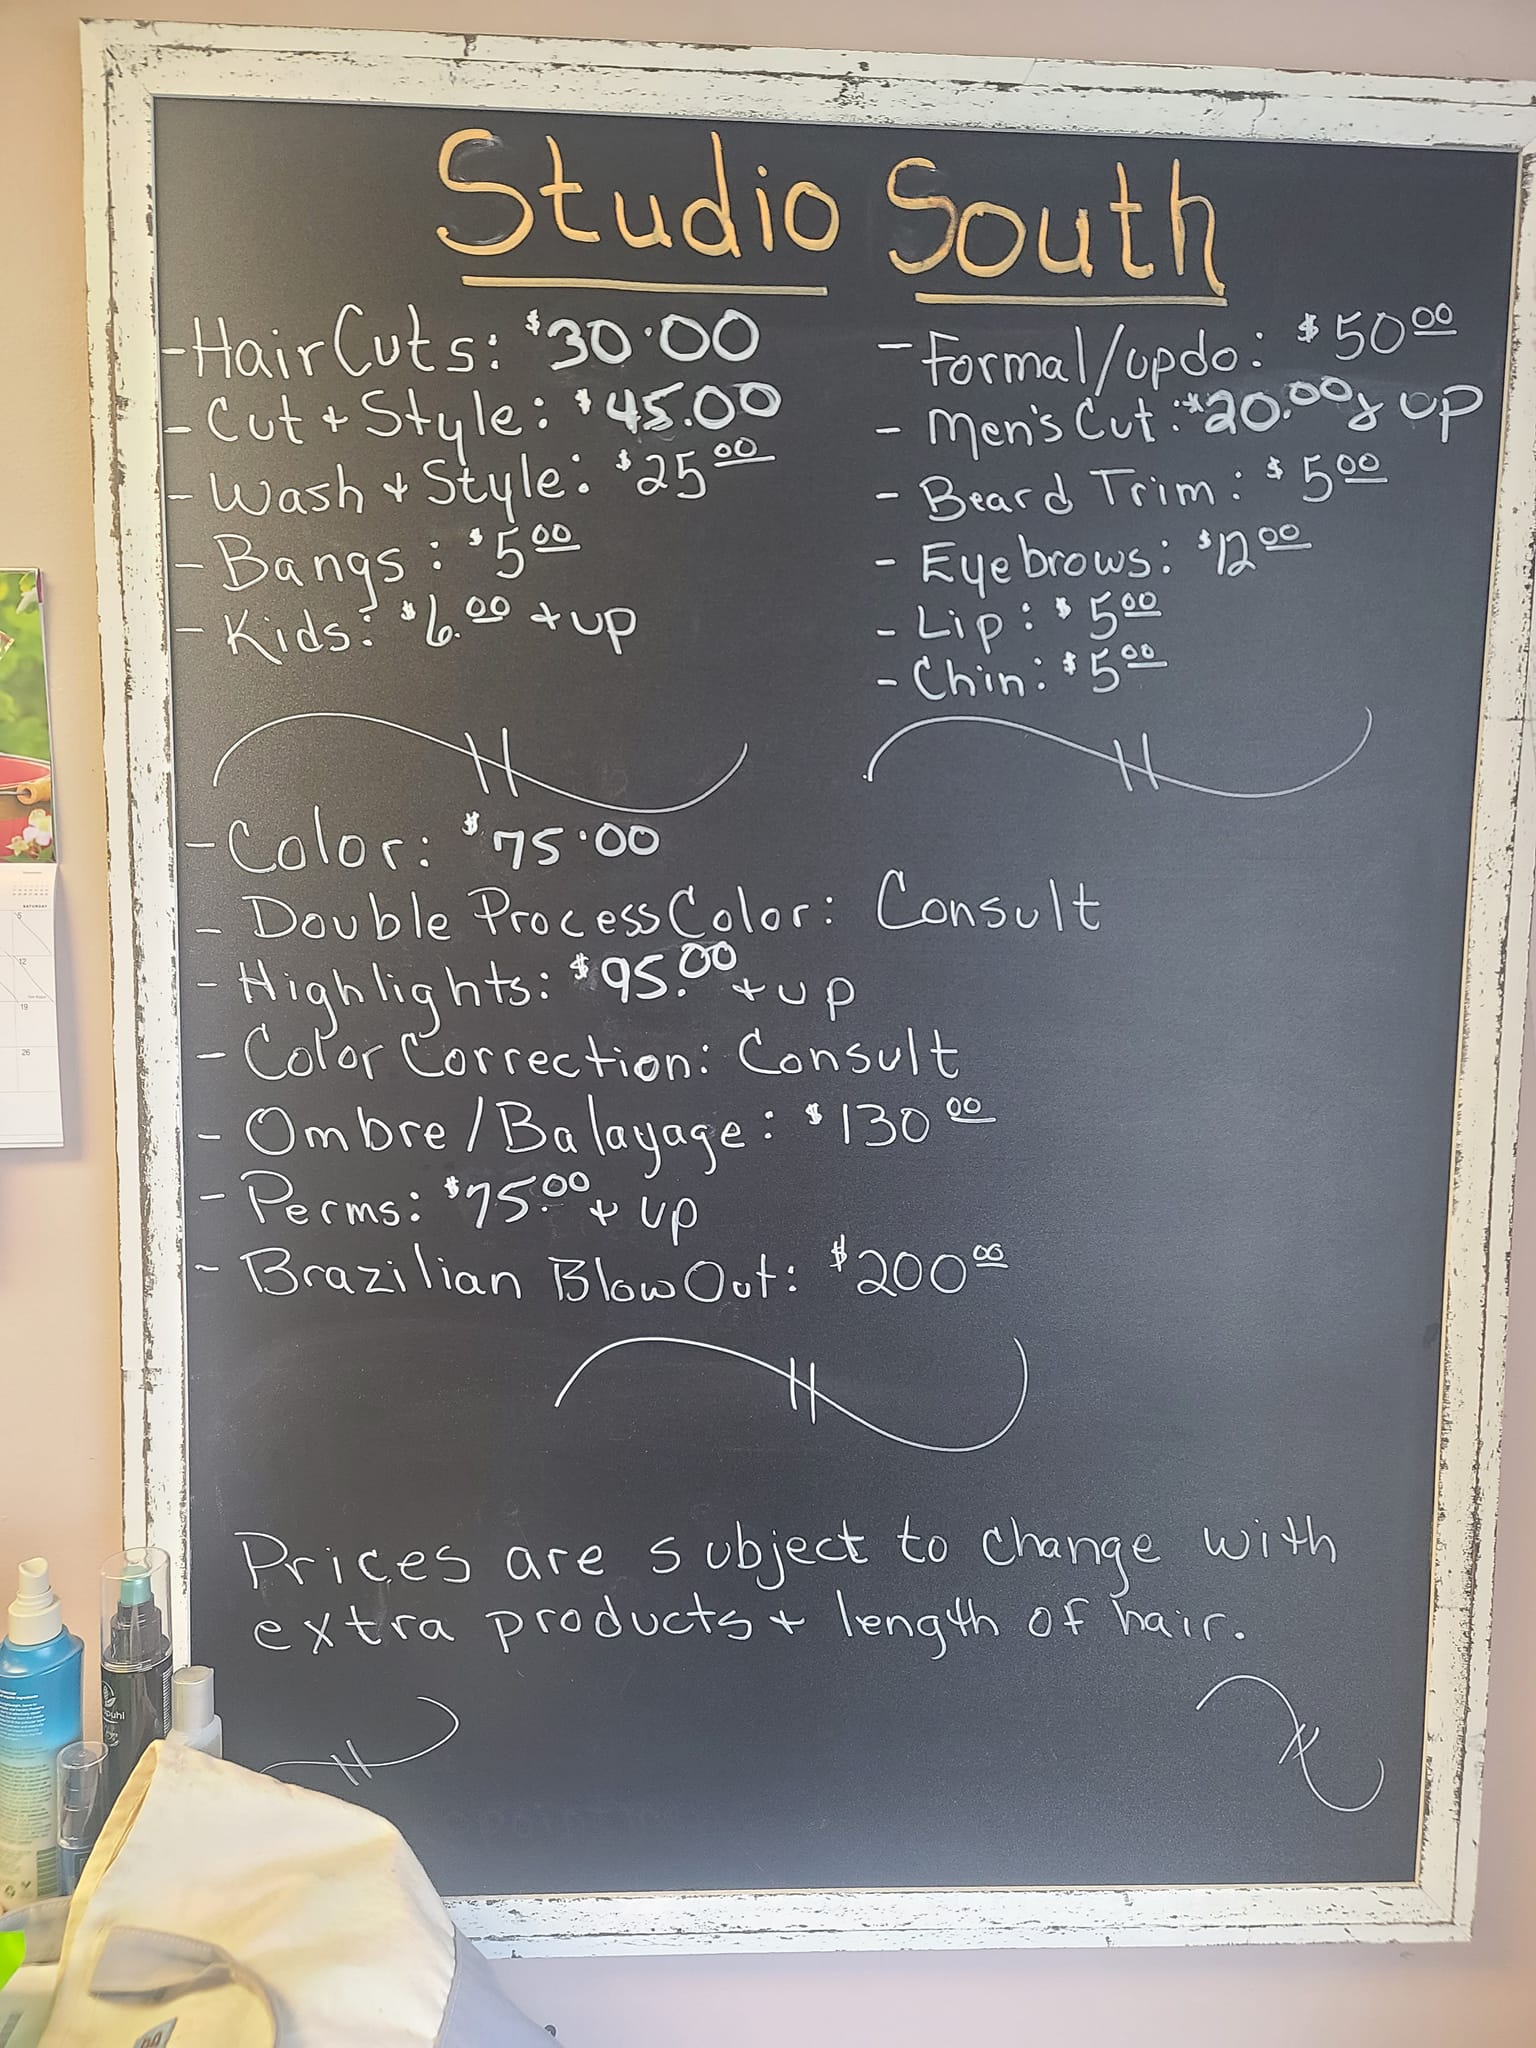 Studio South
- Hair Cuts: $30.00
- Cut + Style: $45.00
- Wash + Style: $25 00
- Bangs: $5 00
- Kids: $6.00 + up
- Formal/updo: $50 00
- Men's Cut: $20.00 & up
- Beard Trim: $5 00
- Eyebrows: $12 00
- Lip: $5 00
- Chin: $5 00
- Color: $75.00
- Double Process Color: Consult
- Highlights: $95.00 + up
- Color Correction: Consult
- Ombre/Balayage: $130 00
- Perms: $75.00 + up
- Brazilian Blow Out: $200 00
Prices are subject to change with
extra products + length of hair.
SATURDAY
5
12
19
26